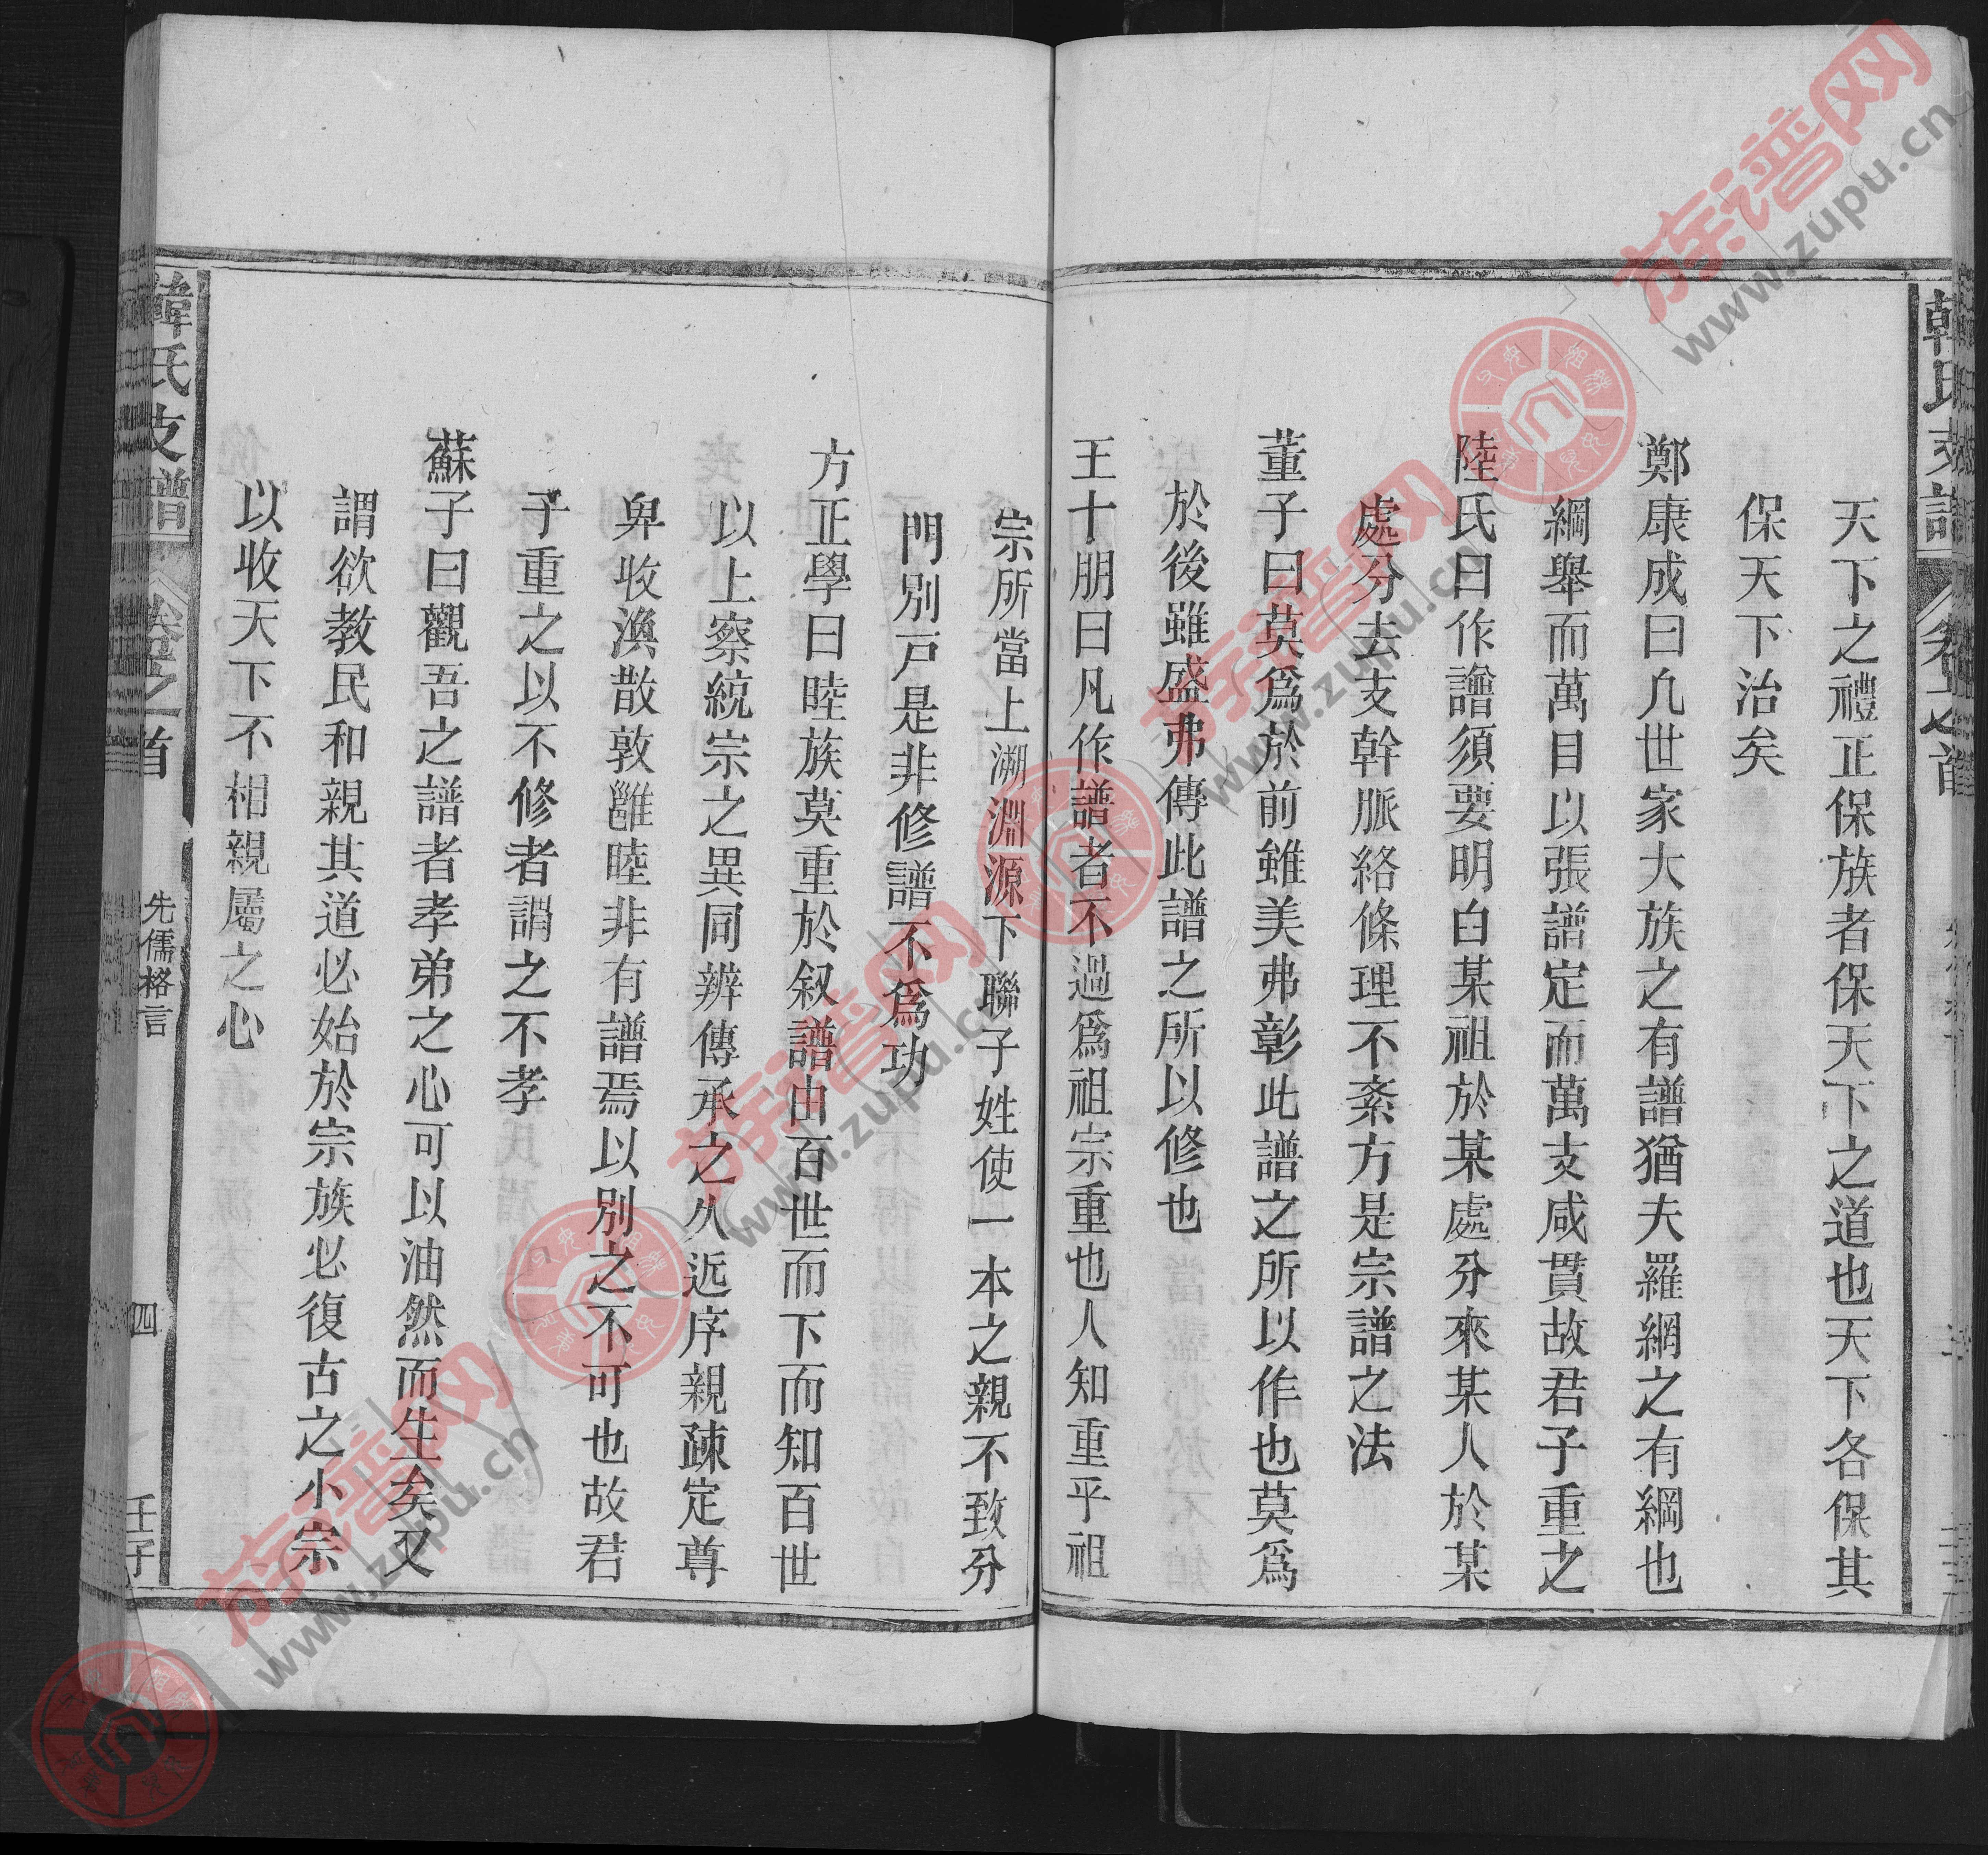 韓氏支譜
卷之首
天下之禮正保族者保天下之道也天下各保其
保天下治矣
鄭康成曰凢世家大族之有譜猶夫羅網之有綱也
綱舉而萬目以張譜定而萬支咸貫故君子重之
陸氏曰作譜須要明白某祖於某處分來某人於某
處分去支幹脈絡條理不紊方是宗譜之法
董子曰莫爲於前雖美弗彰此譜之所以作也莫爲
於後雖盛弗傳此譜之所以修也
王十朋曰凡作譜者不過爲祖宗重也人知重乎祖
宗所當上溯淵源下聯子姓使一本之親不致分
門別戸是非修譜不爲功
方正學曰睦族莫重於叙譜由百世而下而知百世
以上察統宗之異同辨傳承之久近序親疎定尊
卑收渙散敦雝睦非有譜焉以別之不可也故君
子重之以不修者謂之不孝
蘇子曰觀吾之譜者孝弟之心可以油然而生矣又
謂欲教民和親其道必始於宗族必復古之小宗
以收天下不相親屬之心
韓氏支譜
卷之首
先儒格言
四
壬子
族谱网
www.zupu.cn
族谱网
www.zupu.cn
族谱网
www.zupu.cn
族谱网
www.zupu.cn